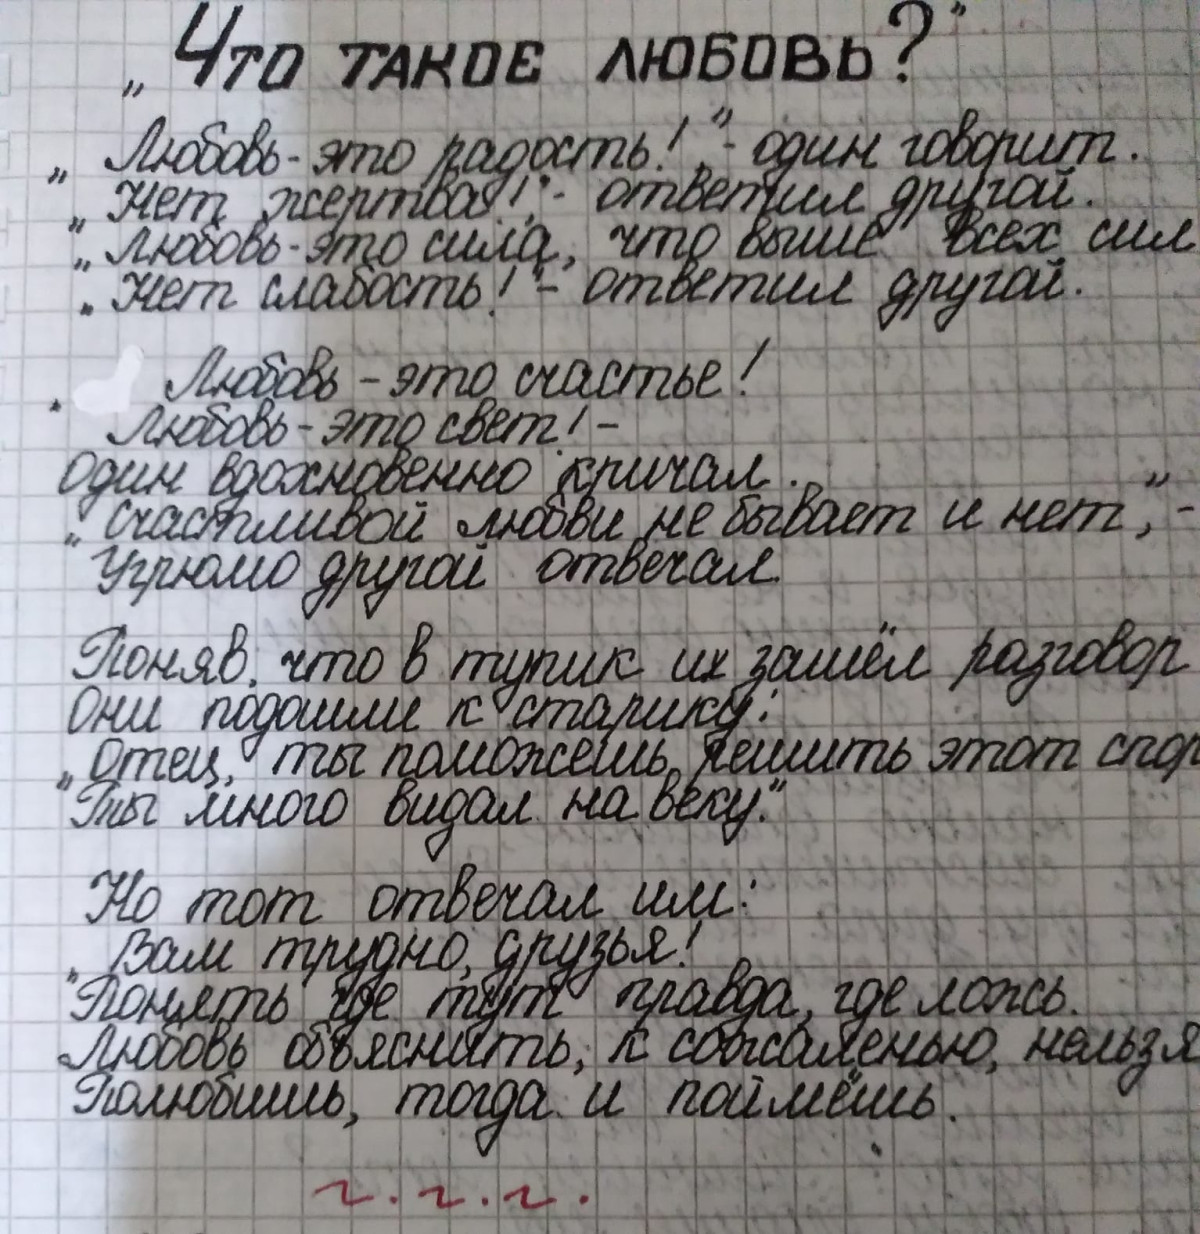 „Что такое любовь?"
„Любовь-это радость!",- один говорит.
„Нет жертва!",- ответил другой.
„Любовь-это сила, что выше всех сил
„Нет слабость!"- ответил другой.
Любовь-это счастье!
Любовь-это свет!-
Один вдохновенно кричал.
„Счастливой любви не бывает и нет",-
Угрюмо другой отвечал.
Поняв, что в тупик их зашёл разговор
Они подошли к старику:
„Отец, ты поможешь решить этот спор
Ты много видал на веку."
Но тот отвечал им:
„Вам трудно, друзья!
Понять где тут правда, где ложь.
Любовь объяснить, к сожаленью, нельзя
Полюбишь, тогда и поймёшь.